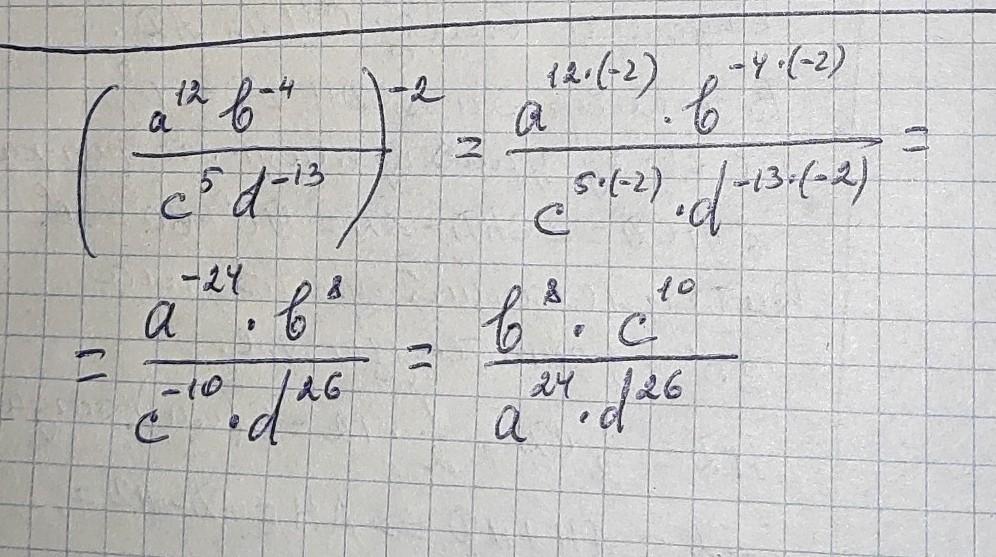 (a¹² b⁻⁴ / c⁵ d⁻¹³)⁻² = a^(12·(-2)) · b^(-4·(-2)) / c^(5·(-2)) · d^(-13·(-2)) =
= a⁻²⁴ · b⁸ / c⁻¹⁰ · d²⁶ = b⁸ · c¹⁰ / a²⁴ · d²⁶